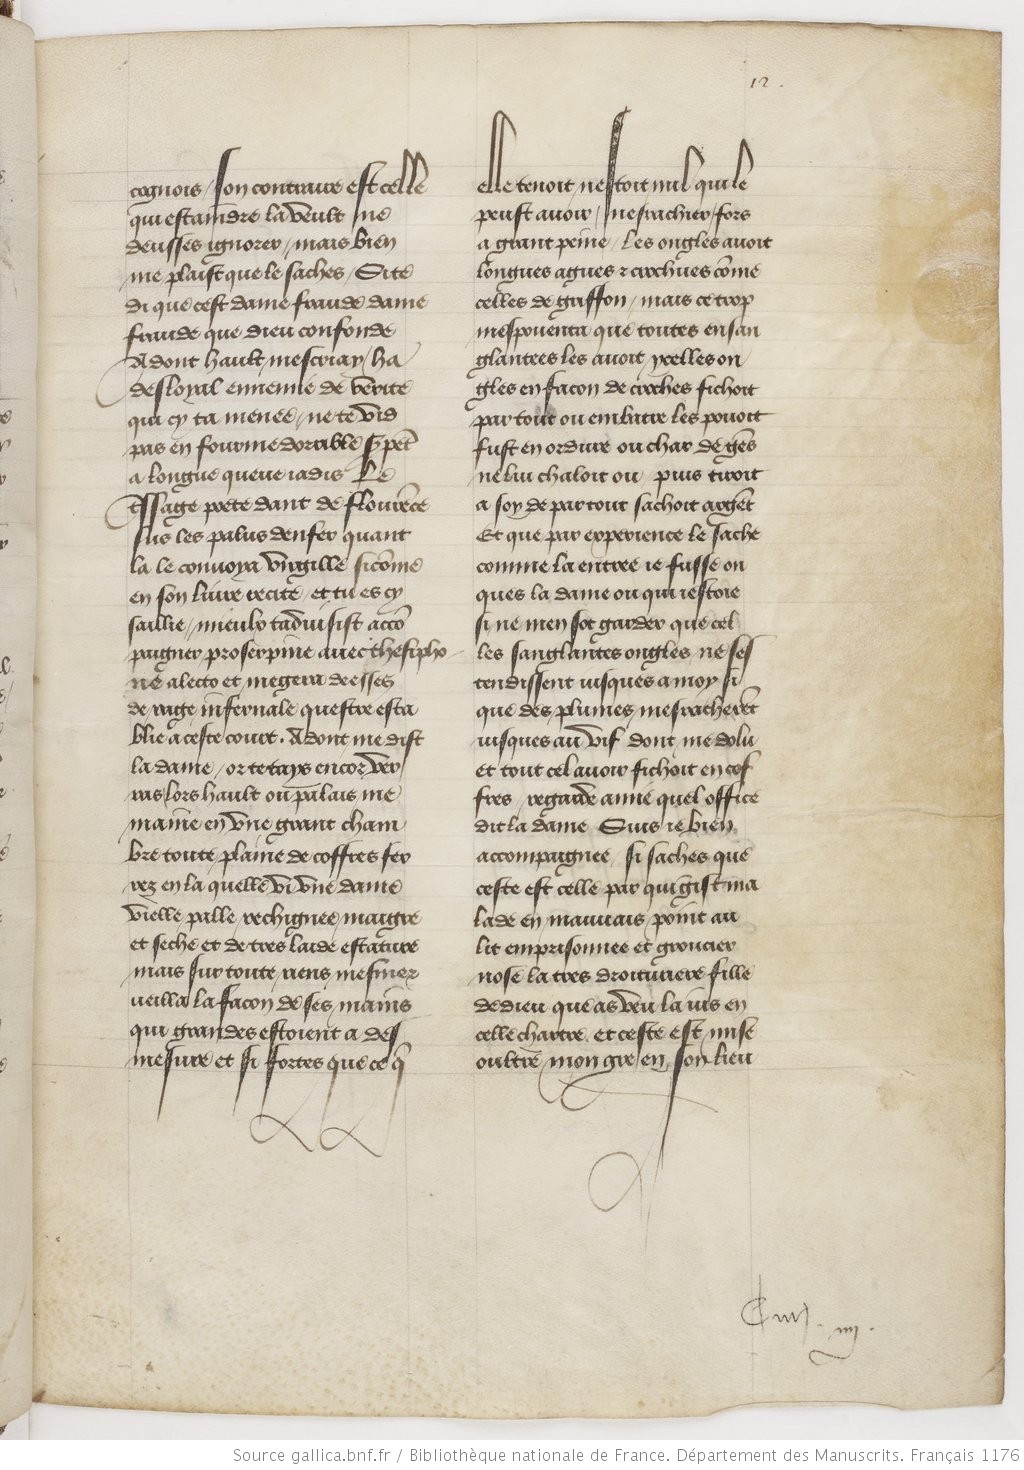 12.
cognois / son contraire est celle
qui estaindre la veult ne
deusses ignorer / mais bien
me plaist que le saches / Si te
di que cest dame fraude dame
fraude que dieu confonde
Adont hault mescriay / ha
desloyal ennemie de verite
qui cy ta menee / ne te vid
pas en fourme dorrible s̾pēt
a longue queue iadis Le
tssage poete dant de flourēce
sus les palus denfer quant
la le conuoya virgille si cōme
en son liure recite / et tu es cy
saillie / mieulx taduisist accō
paigner proserpine auec thesipho
ne alecto et megera deesses
de rage infernale questre esta
blie a ceste court. Adont me dist
la dame / or te tays encor ver
ras lors hault ou palais me
maine en vne grant cham
bre toute plaine de coffres fer
rez en la quelle vi vne dame
vielle palle rechignee maigre
et seche et de tres laide estature
mais sur toute riens mesmer
ueilla la facon de ses mains
qui grandes estoient a des
mesure et si fortes que ce q̄
elle tenoit nestoit nul qui le
peust auoir / nesrachier fors
a grant peine / les ongles auoit
longues agues ⁊ crochues cōme
celles de griffon / mais ce trop
mespouenta que toutes ensan
glantees les auoit ycelles on
gles en facon de croches fichoit
par tout ou embatre les pouoit
fust en ordure ou char de gēs
ne lui chaloit ou puis tiroit
a soy de par tout sachoit argēt
Et que par experience le sache
comme la entree ie fusse on
ques la dame ou qui iestoie
si ne men sot garder que cel
les sanglantes ongles ne ses
tendissent iusques a moy si
que des plumes mesracherēt
iusques au vif dont me dolu
et tout cel auoir fichoit en cof
fres / regarde amie quel office
dit la dame Suis ie bien
accompaignee / si saches que
ceste est celle par qui gist ma
lade en mauuais point au
lit emprisonnee et groucier
nose la tres droituriere fille
de dieu que as veu la ius en
celle chartre et ceste est mise
oultre mon gre en son lieu
Source gallica.bnf.fr / Bibliothèque nationale de France. Département des Manuscrits. Français 1176